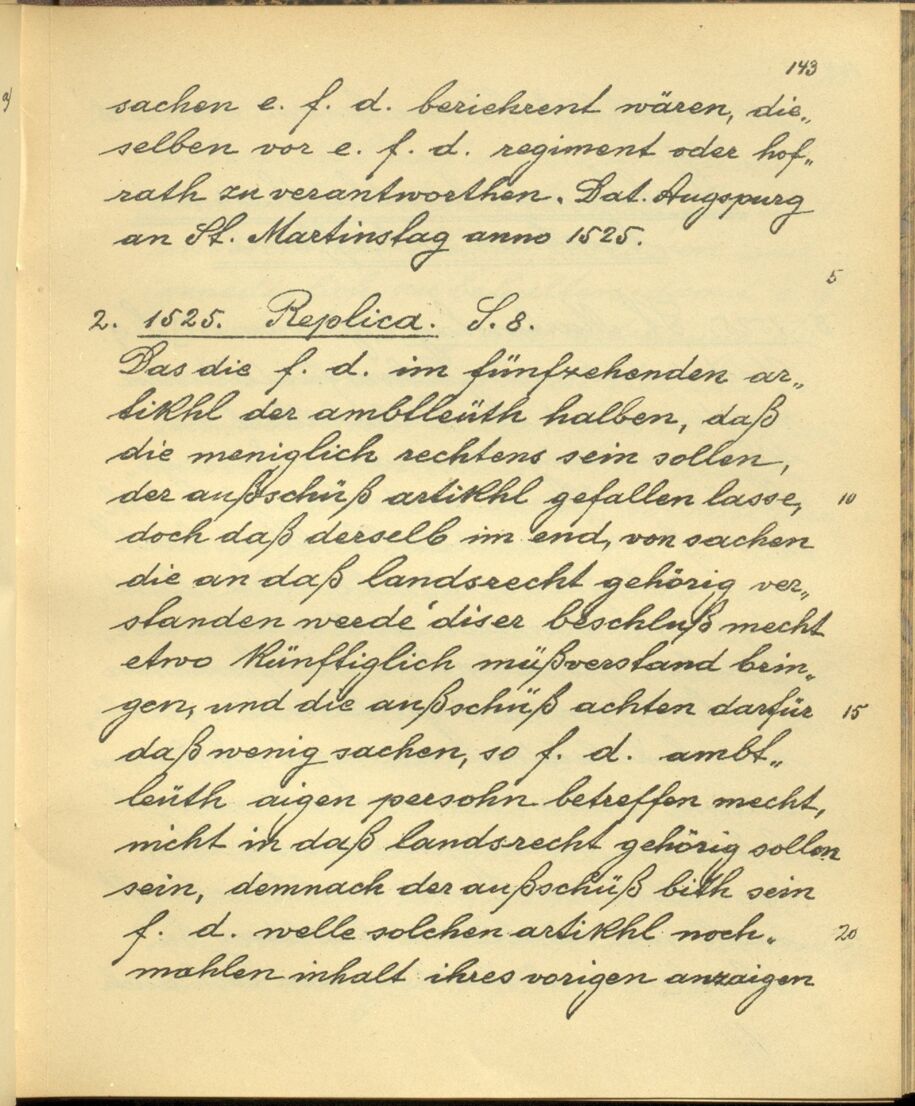 143
sachen e. f. d. beriehrent wären, die„
selben vor e. f. d. regiment oder hof„
rath zu verantworthen. Dat. Augspurg
an St. Martinstag anno 1525.
5
2. 1525. Replica. S. 8.
Das die f. d. im fünfzehenden ar„
tikhl der ambtleüth halben, daß
die meniglich rechtens sein sollen,
der außschüß artikhl gefallen lasse, 10
doch daß derselb im end, von sachen
die an daß landsrecht gehörig ver„
standen werde‘ diser beschluß mecht
etwo künftiglich müßverstand brin„
gen, und die außschüß achten darfür 15
daß wenig sachen, so f. d. ambt„
leüth aigen persohn betreffen mecht,
nicht in daß landsrecht gehörig sollen
sein, demnach der außschüß bith sein
f. d. welle solchen artikhl noch„ 20
mahlen inhalt ihres vorigen anzaigen